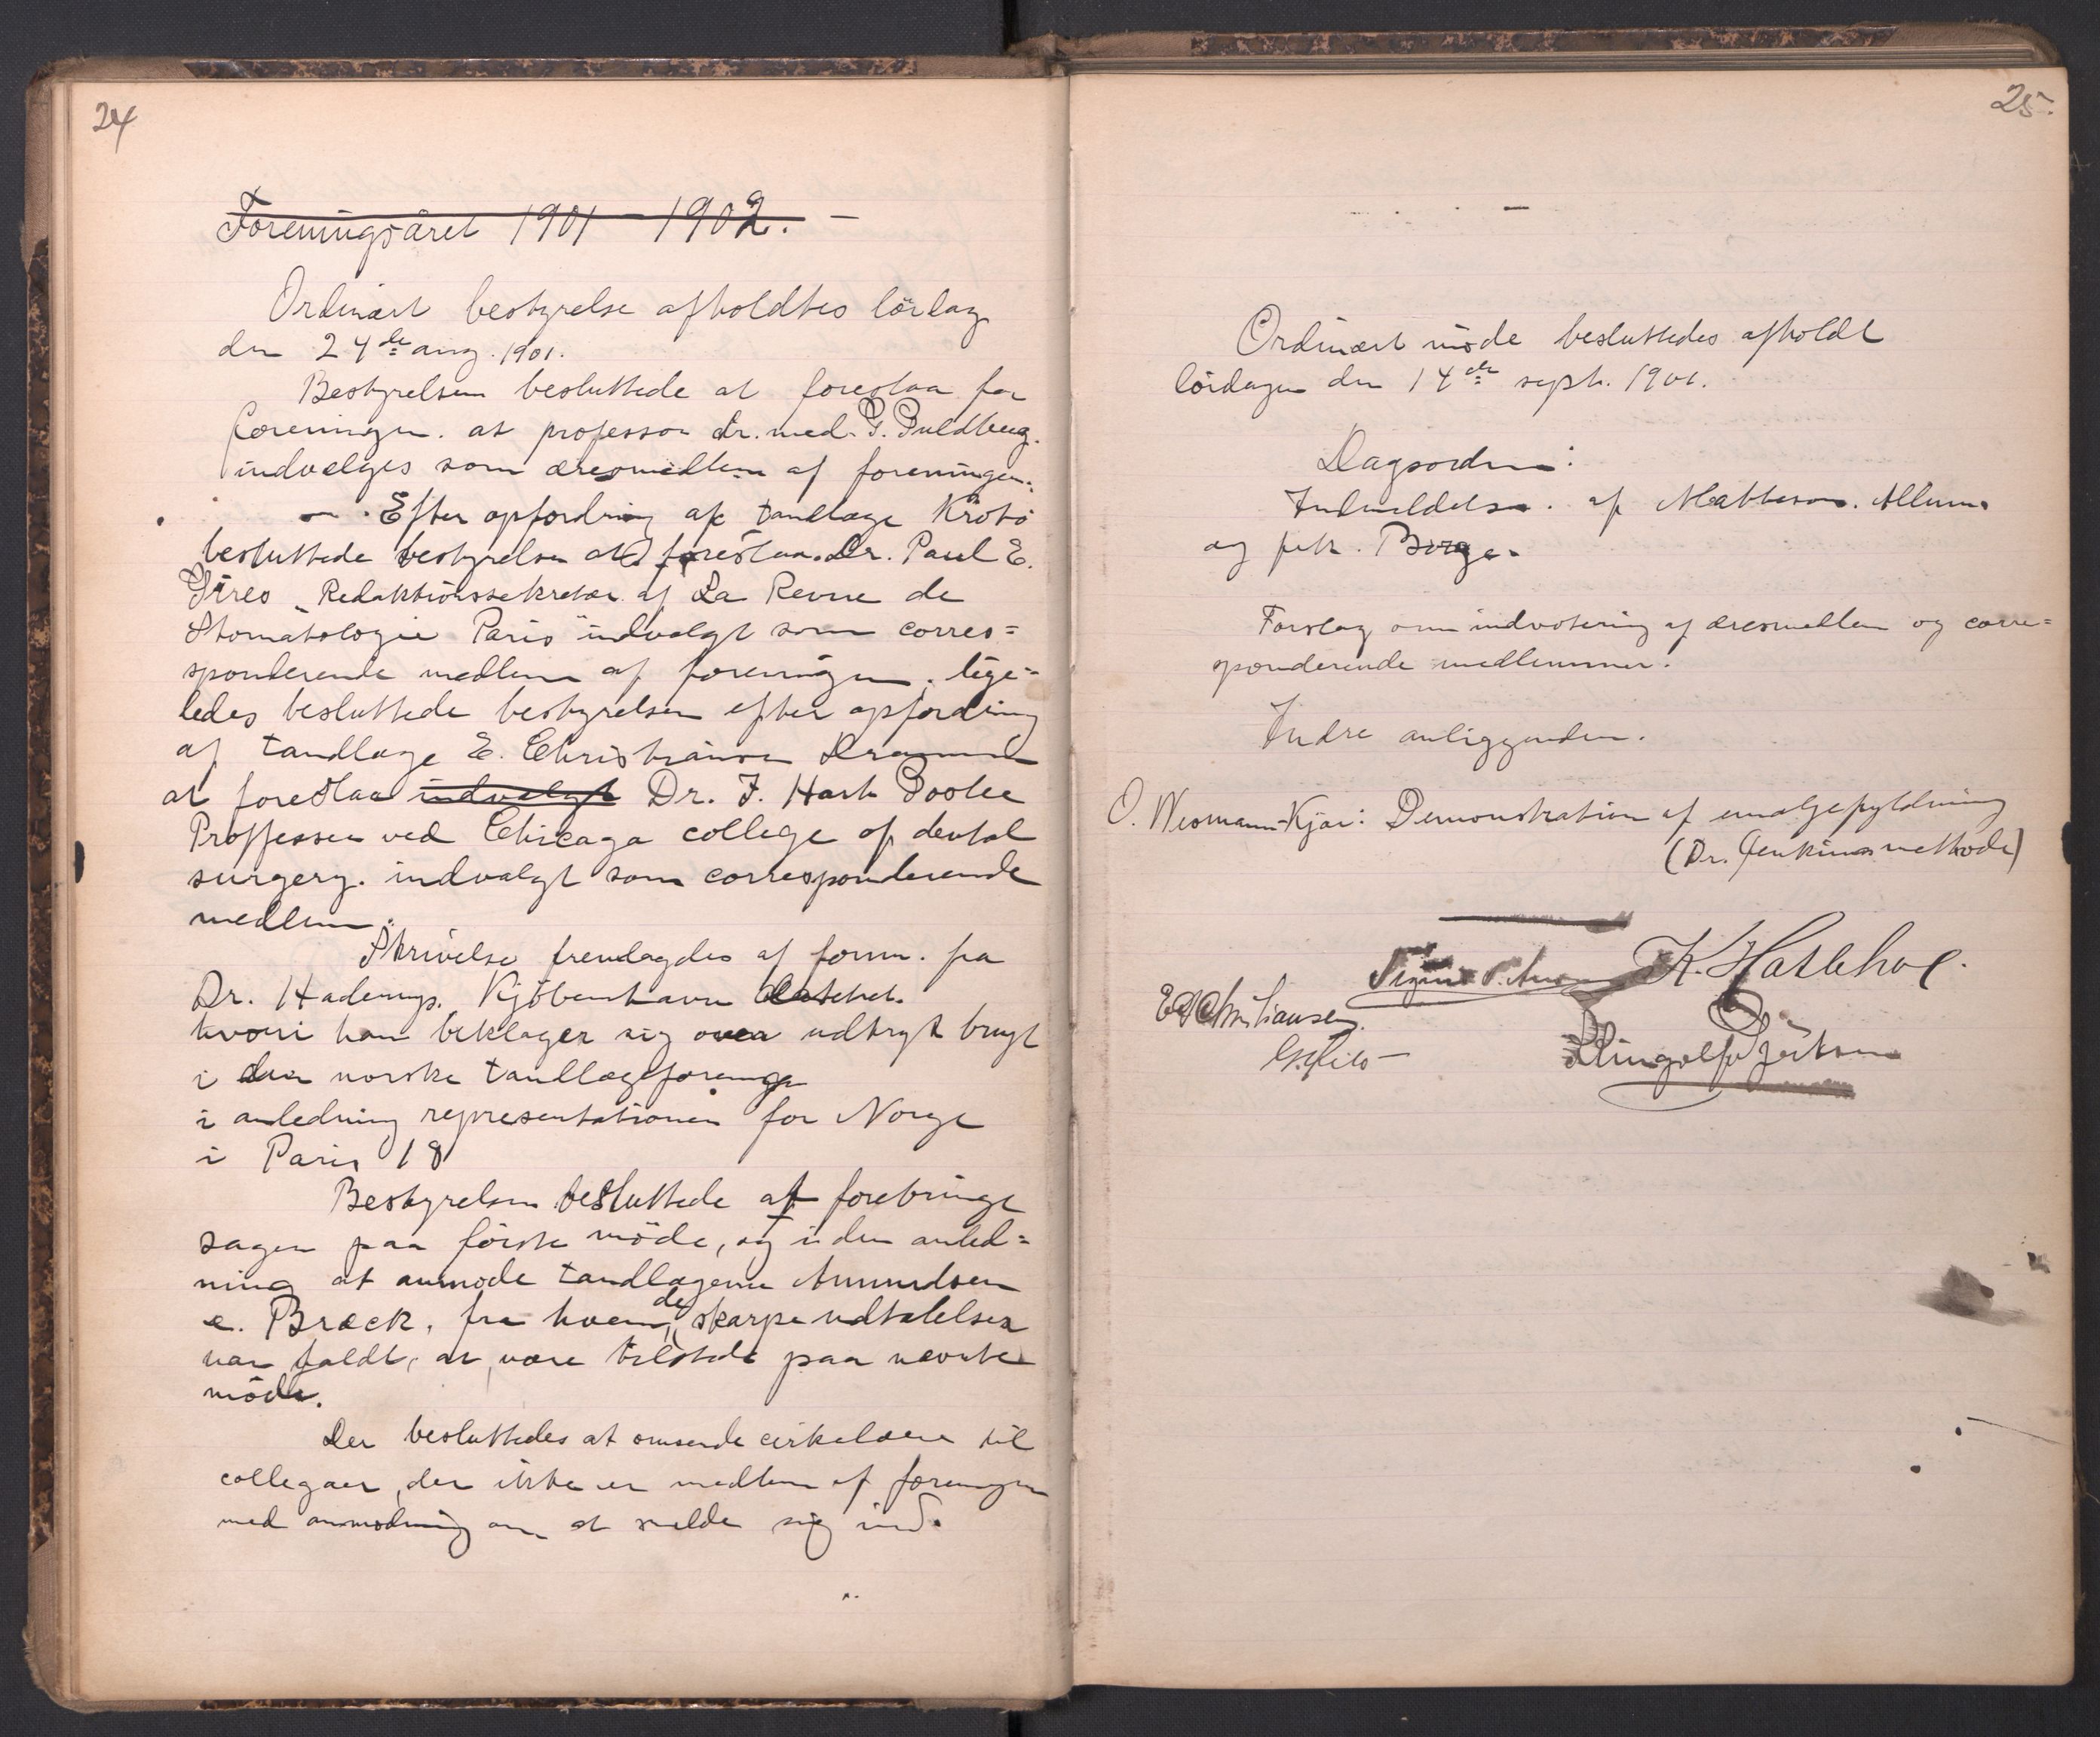 24
Foreningsåret 1901–1902. –
Ordinært bestyrelse afholdtes lördag
den 24de aug. 1901.
Bestyrelsen besluttede at foreslaa for
foreningen. at professor dr. med. G. Guldberg.
indvælges som æresmedlem af foreningen.
Efter opfordring af tandlæge Krohö
besluttede bestyrelsen at foreslaa Dr. Paul E.
Gires „Redaktionssekretær af La Revue de
Stomatologie Paris" indvalgt som corres=
sponderende medlem af foreningen. lige=
ledes besluttede bestyrelsen efter opfordring
af tandlæge E. Christiansen Drammen
at foreslaa indvalgt Dr. J. Hart Poolee
Proffessor ved Chicago college of dental
surgery. indvalgt som corresponderende
medlem.
Skrivelse fremlagdes af form. fra
Dr. Kjöbenhavn
hvori han beklager sig over udtryk brugt
i den norske tandlægeforening
i anledning representationen for Norge
i Paris 18
Bestyrelsen besluttede at forebringe
sagen paa förste möde, og i den anled=
ning at anmode tandlægerne Amundsen
e. Bræck, fra hvem de skarpe udtalelser
var faldt, at være tilstede paa nævnte
möde.
Der besluttedes at omsende cirkulære til
collegaer, der ikke er medlem af foreningen
med anmodning om at melde sig ind.
25.
Ordinært möde besluttedes afholdt
lördagen den 14de sept. 1901.
Dagsorden:
Indmeldelse. af Matheson. Allum.
og frk. Borge.
Forslag om indvotering af æresmedlem og corre=
sponderende medlemmer.
Indre anliggender.
O. Wesmann-Kjær: Demonstration af emaljefyldning
(Dr. Jenkins methode)
K. Haslehol.
E Christiansen.